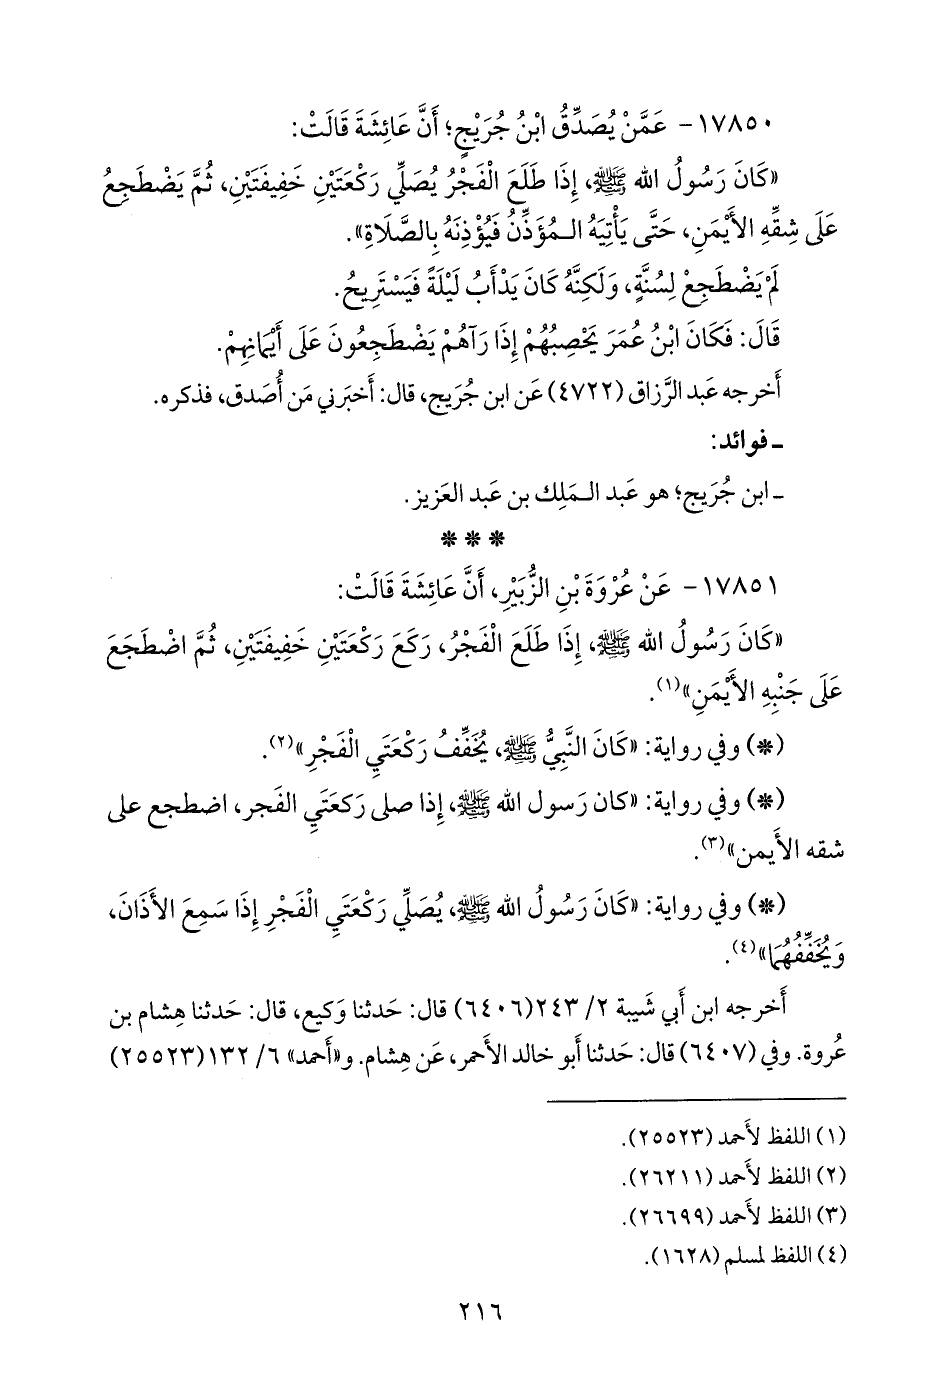 ١٧٨٥٠- عَمَّنْ يُصَدِّقُ ابْنُ جُرَيْجٍ؛ أَنَّ عَائِشَةَ قَالَتْ:
«كَانَ رَسُولُ الله ﷺ، إِذَا طَلَعَ الْفَجْرُ يُصَلِّي رَكْعَتَيْنِ خَفِيفَتَيْنِ، ثُمَّ يَضْطَجِعُ
عَلَى شِقِّهِ الأَيْمَنِ، حَتَّى يَأْتِيَهُ الـمُؤَذِّنُ فَيُؤْذِنَهُ بِالصَّلَاةِ».
لَمْ يَضْطَجِعْ لِسُنَّةٍ، وَلَكِنَّهُ كَانَ يَدْأَبُ لَيْلَةً فَيَسْتَرِيحُ.
قَالَ: فَكَانَ ابْنُ عُمَرَ يَحْصِبُهُمْ إِذَا رَآهُمْ يَضْطَجِعُونَ عَلَى أَيْمَانِهِمْ.
أَخرجه عَبد الرَّزاق (٤٧٢٢) عَن ابن جُرَيج، قال: أَخبَرني مَن أُصَدق، فذكره.
ـ فوائد:
ـ ابن جُرَيج؛ هو عَبد الـمَلِك بن عَبد العَزيز.
* * *
١٧٨٥١- عَنْ عُرْوَةَ بْنِ الزُّبَيْرِ، أَنَّ عَائِشَةَ قَالَتْ:
«كَانَ رَسُولُ الله ﷺ، إِذَا طَلَعَ الْفَجْرُ، رَكَعَ رَكْعَتَيْنِ خَفِيفَتَيْنِ، ثُمَّ اضْطَجَعَ
عَلَى جَنْبِهِ الأَيْمَنِ»(١).
(*) وفي رواية: «كَانَ النَّبِيُّ ﷺ، يُخَفِّفُ رَكْعَتَيِ الْفَجْرِ»(٢).
(*) وفي رواية: «كان رَسول الله ﷺ، إِذا صلى رَكعَتَيِ الفَجر، اضطجع على
شقه الأَيمن»(٣).
(*) وفي رواية: «كَانَ رَسُولُ الله ﷺ، يُصَلِّي رَكْعَتَيِ الْفَجْرِ إِذَا سَمِعَ الأَذَانَ،
وَيُخَفِّفُهُمَا»(٤).
أَخرجه ابن أَبي شَيبة ٢/ ٢٤٣(٦٤٠٦) قال: حَدثنا وَكيع، قال: حَدثنا هِشام بن
عُروة. وفي (٦٤٠٧) قال: حَدثنا أَبو خالد الأَحمر، عَن هِشام. و«أَحمد» ٦/ ١٣٢(٢٥٥٢٣)
(١) اللفظ لأَحمد (٢٥٥٢٣).
(٢) اللفظ لأَحمد (٢٦٢١١).
(٣) اللفظ لأَحمد (٢٦٦٩٩).
(٤) اللفظ لمسلم (١٦٢٨).
٢١٦